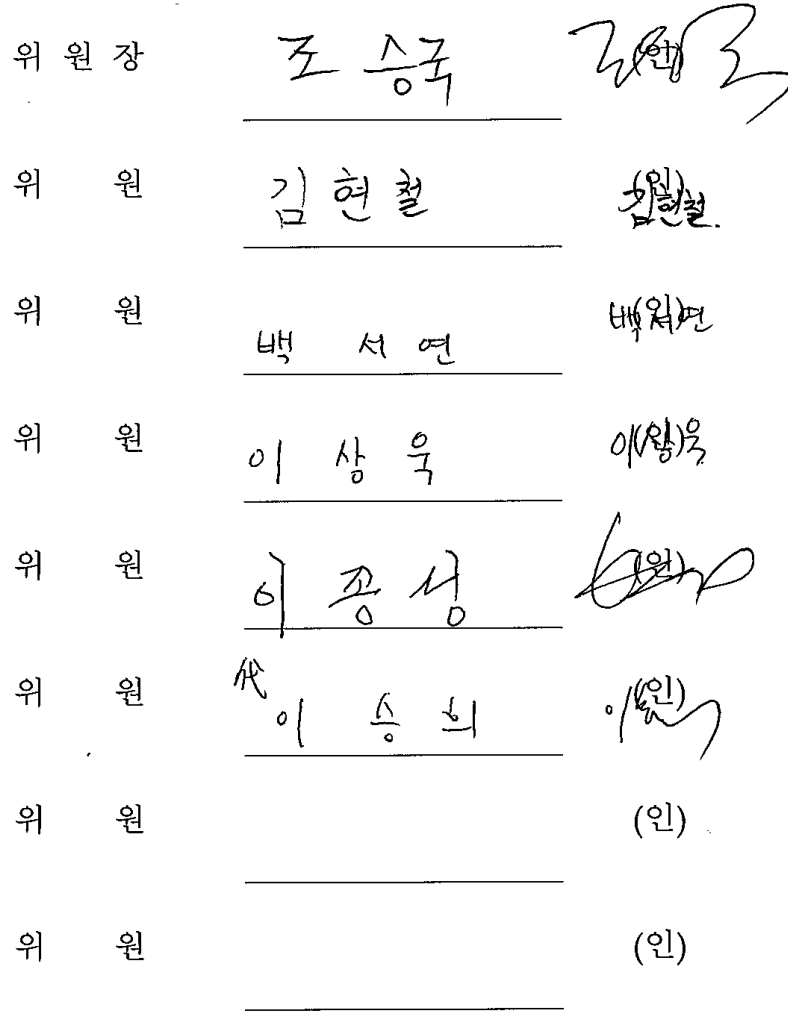 위 원 장 조 승국 (인)
위 원 김현철 (인) 김현철.
위 원 백 서 연 (인) 백서연
위 원 이 상 욱 (인) 이상욱
위 원 이 종 성 (인)
위 원 代 이 승 희 (인)
위 원 (인)
위 원 (인)